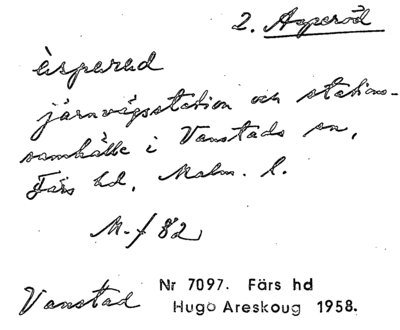 2. Asperöd
àsperud
järnvägsstation och stations-
samhälle i Vanstads sn,
Färs hd, Malm. l.
M-f 82
Vanstad Nr 7097. Färs hd
Hugo Areskoug 1958.